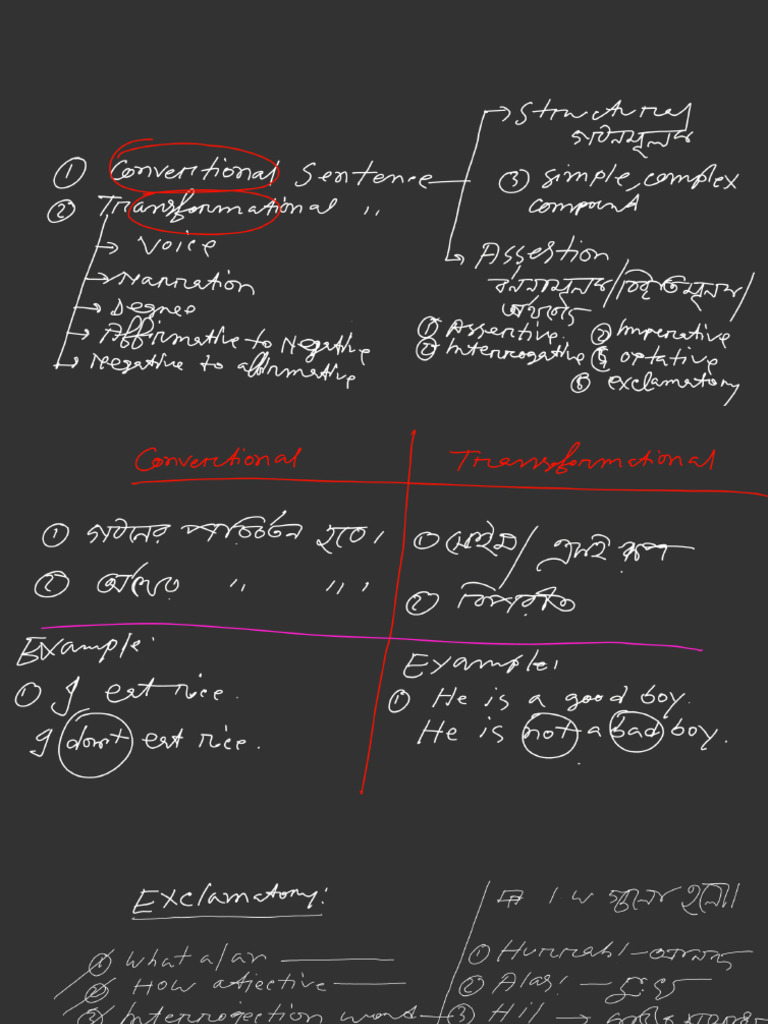 → Structural
গঠনমূলক
① Converctional Sentence
③ simple, complex
compound
② Transformational "
→ Voice
→ Narration
→ Degree
→ Affirmative to Negative
→ Negative to affirmative
→ Assertion
বর্ননামূলক/বিবৃতিমূলক/
অর্থগত
① Assertive ③ Imperative
② Interrogative ④ optative
⑤ exclamatory
Converctional
Transformational
① গঠনের পরিবর্তন হবে।
② অর্থের " " "
②
Example:
① I eat rice.
I don't eat rice.
Example:
① He is a good boy.
He is not a bad boy.
Exclamatory:
① what a/an
② How adjective
③ Interrojection word
I.W হলো।
① Hurrah! — আনন্দ
② Alas! — দুঃখ
③ Hi! →